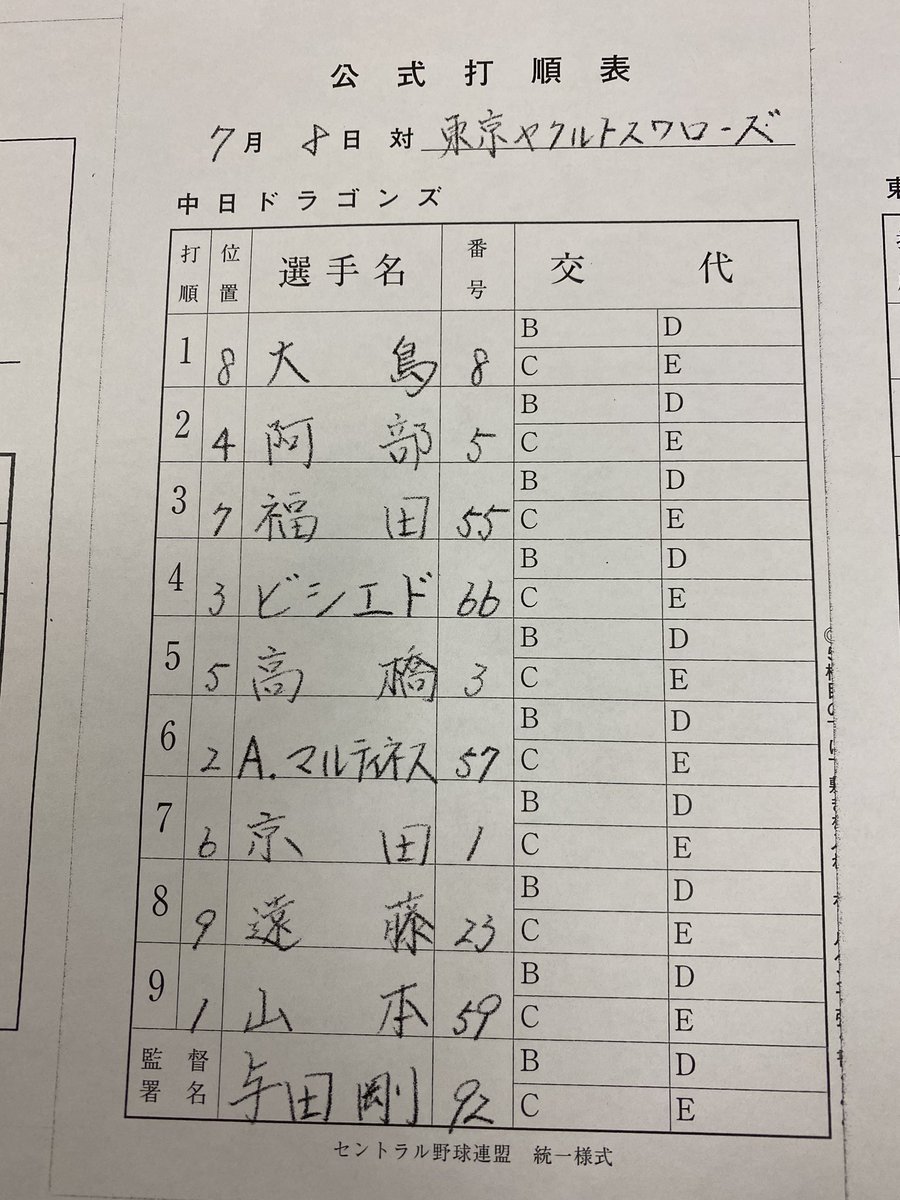 公式打順表
7月8日 対 東京ヤクルトスワローズ
中日ドラゴンズ
打順 位置 選手名 番号 交代
1 8 大島 8 B D
C E
2 4 阿部 5 B D
C E
3 7 福田 55 B D
C E
4 3 ビシエド 66 B D
C E
5 5 高橋 3 B D
C E
6 2 A.マルティネス 57 B D
C E
7 6 京田 1 B D
C E
8 9 遠藤 23 B D
C E
9 1 山本 59 B D
C E
監督署名 与田剛 92 B D
C E
セントラル野球連盟 統一様式
東